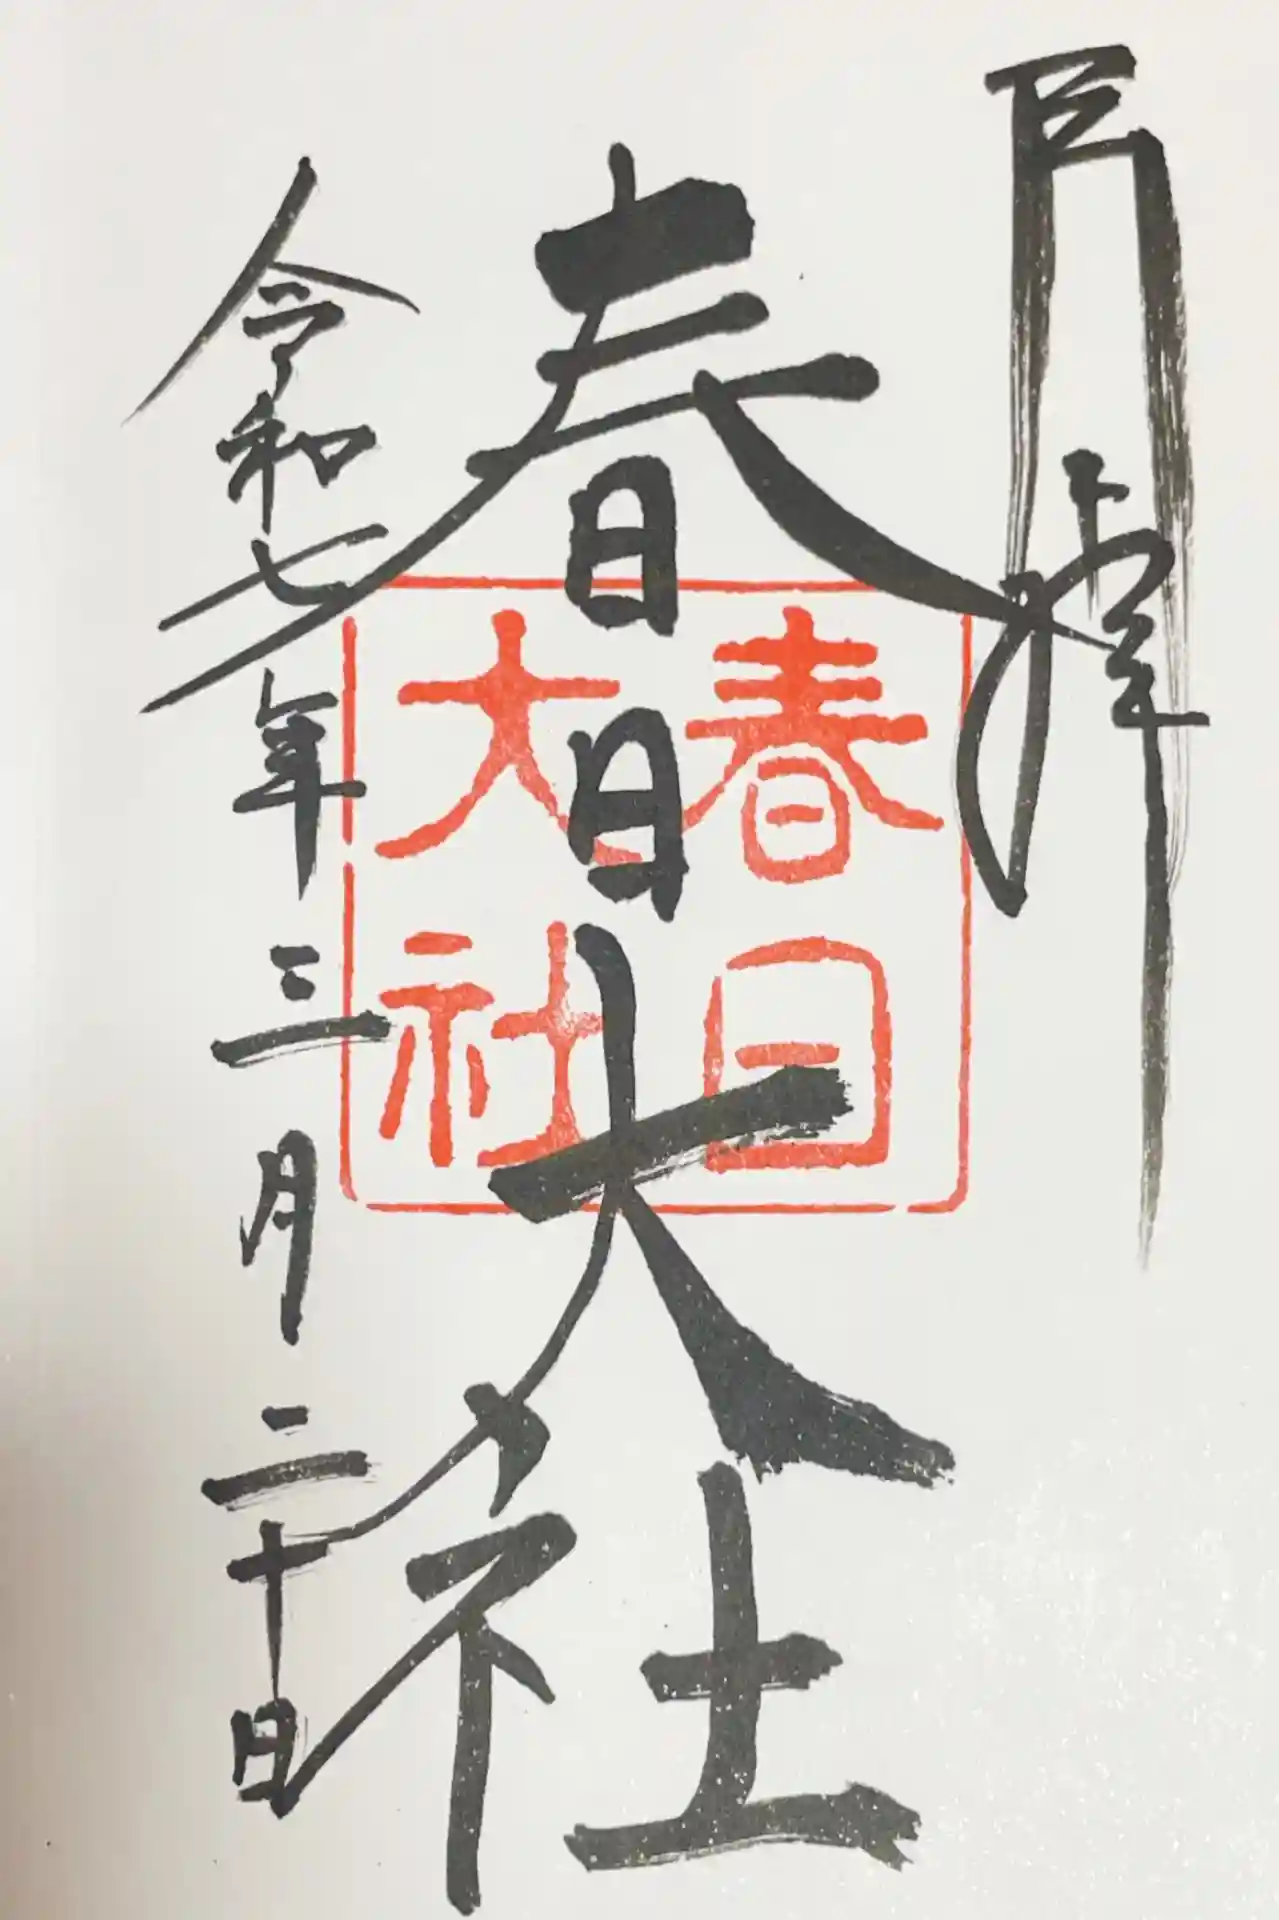 春日大社
春日
大社
令和七年三月二十日